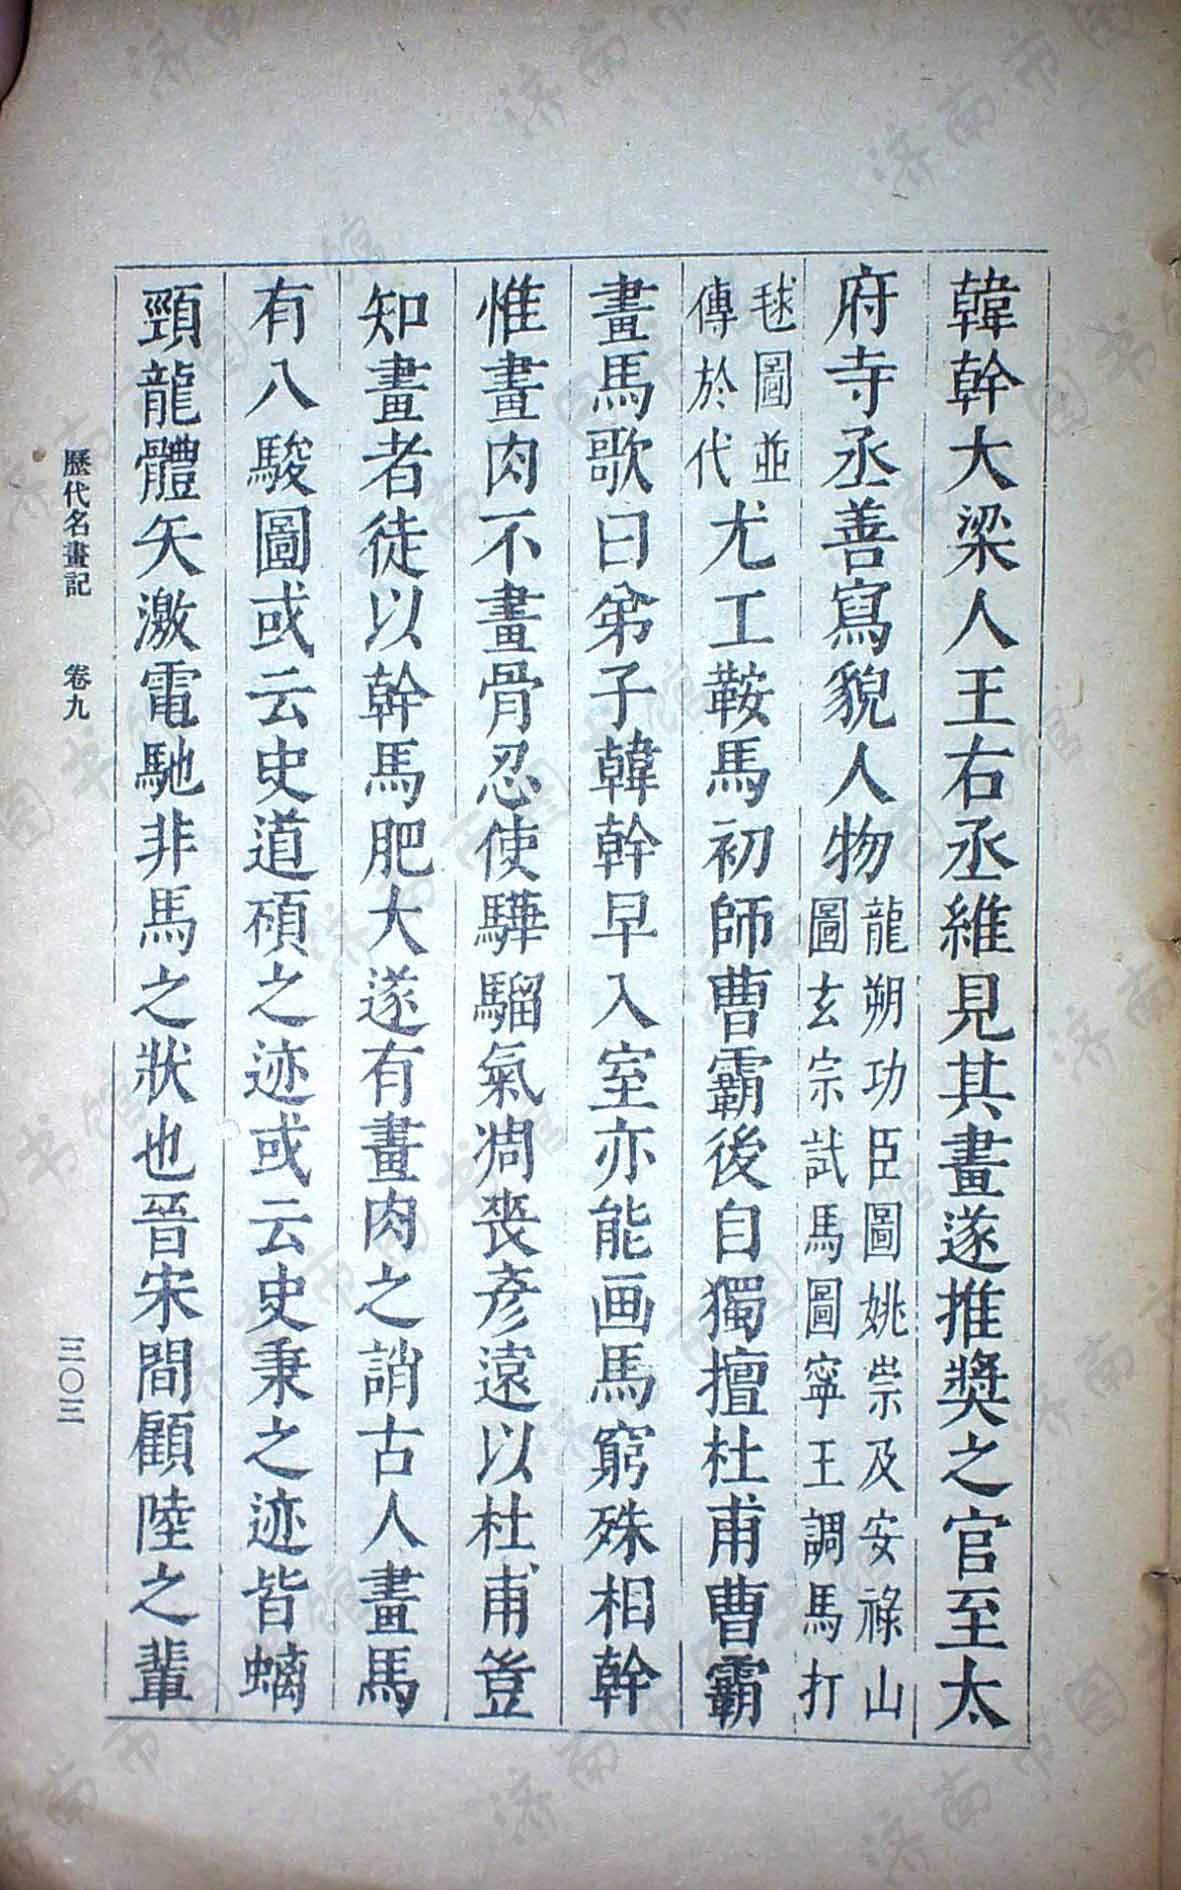 韓幹大梁人王右丞維見其畫遂推奬之官至太
府寺丞善寫貌人物龍朔功臣圖姚崇及安祿山
圖玄宗試馬圖寧王調馬打
毬圖並
傳於代尤工鞍馬初師曹霸後自獨擅杜甫曹霸
畫馬歌曰弟子韓幹早入室亦能画馬窮殊相幹
惟畫肉不畫骨忍使驊騮氣凋喪彥遠以杜甫豈
知畫者徒以幹馬肥大遂有畫肉之誚古人畫馬
有八駿圖或云史道碩之迹或云史秉之迹皆螭
頸龍體矢激電馳非馬之狀也晉宋間顧陸之輩
歷代名畫記 卷九
三〇三
济南市图书馆